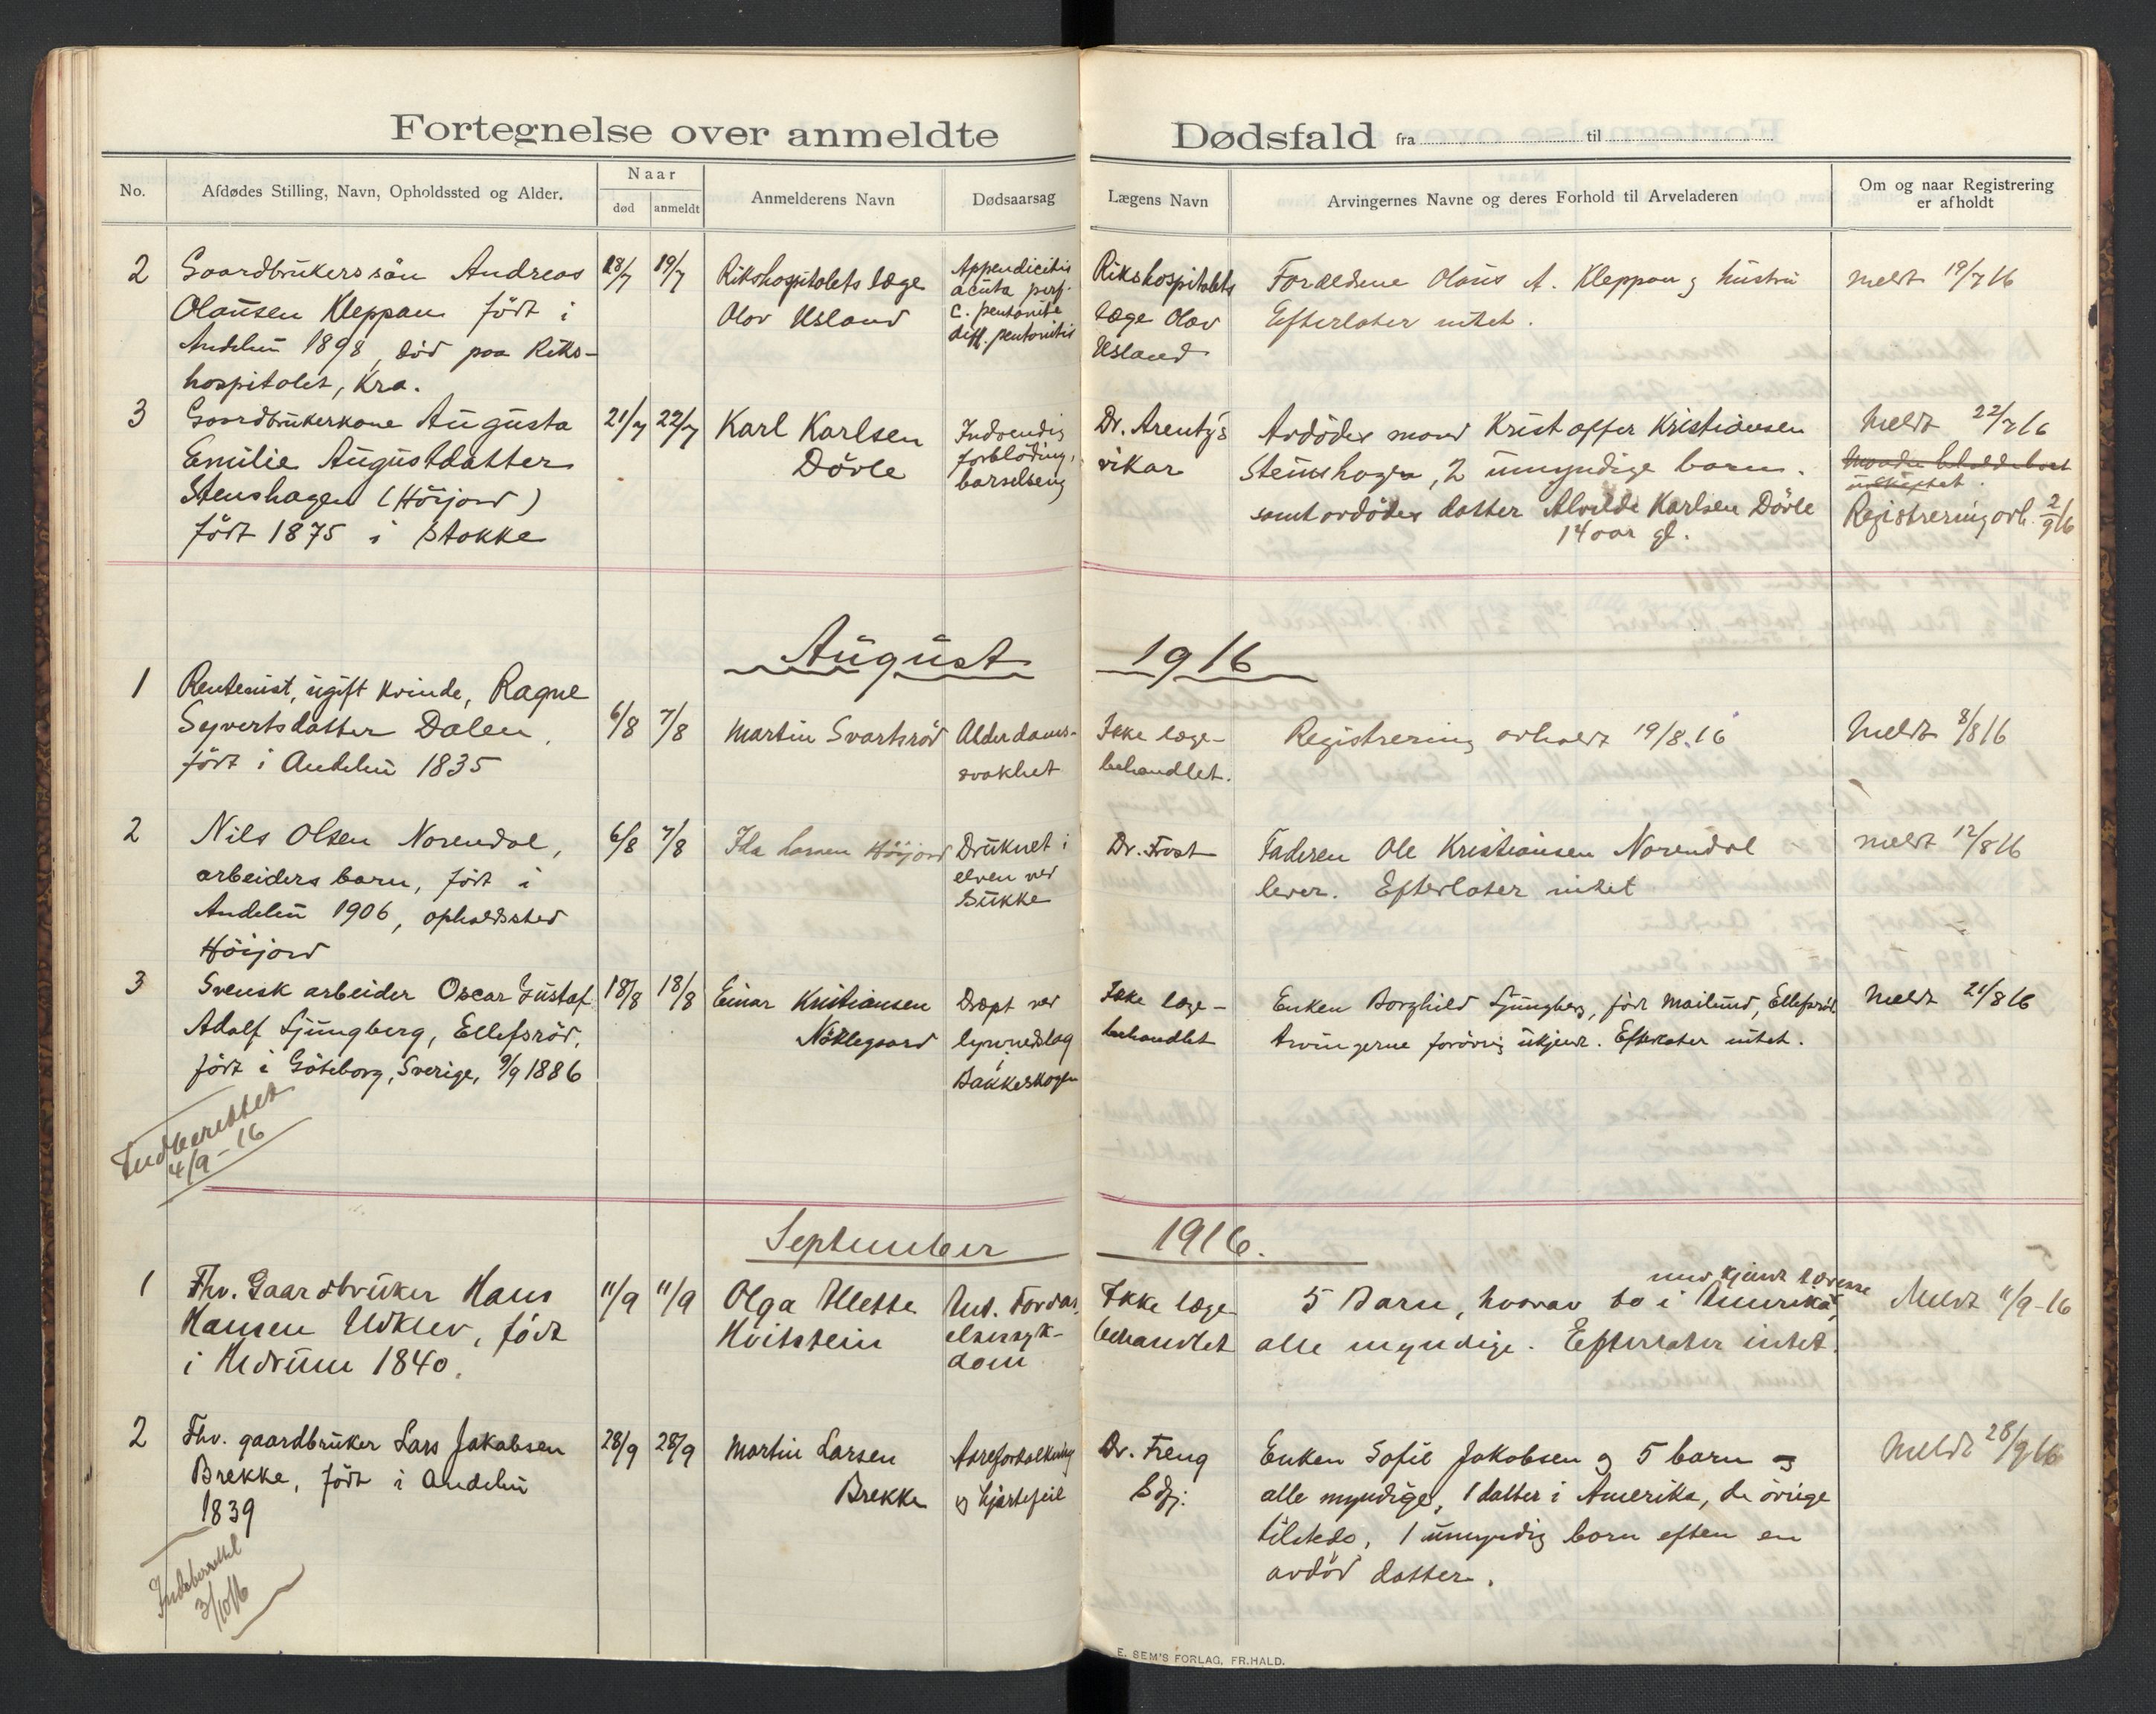 Fortegnelse over anmeldte Dødsfald fra til
No.
Afdødes Stilling, Navn, Opholdssted og Alder.
Naar
død
anmeldt
Anmelderens Navn
Dødsaarsag
Lægens Navn
Arvingernes Navne og deres Forhold til Arveladeren
Om og naar Registrering
er afholdt
2
Gaardbrukerssön Andreas
Olausen Kleppan födt i
Andebu 1898, död paa Riks-
hospitalet, Kra.
18/7
19/7
Rikshospitalets læge
Olav Usland
Appendicitis
acuta perf.
c. peritonite
diff. peritonitis
Rikshospitalets
læge Olav
Usland
Forældrene Olaus A. Kleppan og hustru
Efterlater intet.
meldt 19/7 16
3
Gaardbrukerkone Augusta
Emilie Augustdatter
Stenshagen (Höijord)
födt 1875 i Stokke
21/7
22/7
Karl Karlsen
Dövle
Indvendig
forblödning,
barselseng
Dr. Arentz's
vikar
Avdödes mand Kristoffer Kristiansen
Stenshagen, 2 umyndige barn.
samt avdödes datter Alvilde Karlsen Dövle
14 aar gl.
Meldt 22/7 16
uskiftet.
Registrering avh. 2/9 16
August 1916
1
Rentenist, ugift kvinde, Ragne
Syvertsdatter Dalen,
födt i Andebu 1835
6/8
7/8
Martin Svartsröd
Alderdoms-
svakhet
Ikke læge-
behandlet.
Registrering avholdt 19/8.16
Meldt 8/8 16
2
Nils Olsen Norendal,
arbeiders barn, födt i
Andebu 1906, opholdssted
Höijord
6/8
7/8
Ida Larsen Höijord
Druknet i
elven ved
Sukke
Dr. Frost
Faderen Ole Kristiansen Norendal
lever. Efterlater intet
meldt 12/8 16
3
Svensk arbeider Oscar Gustaf
Adolf Ljungberg, Ellefsröd,
födt i Göteborg, Sverige, 9/9 1886
18/8
18/8
Einar Kristiansen
Nöklegaard
Dræpt ved
lynnedslag
i
Bakkeskogen
Ikke læge-
behandlet
Enken Borghild Ljungberg, födt Mailund, Ellefsröd.
Arvingerne forövrig ukjent. Efterlater intet.
Meldt 21/8 16
Indberettet
4/9-16
September 1916.
1
Fhv. Gaardbruker Hans
Hansen Udklev, födt
i Hedrum 1840.
11/9
11/9
Olga Mette
Hvitstein
Ant. Fordøi-
elsessyk-
dom
Ikke læge
behandlet
med kjendt adresse
5 Barn, hvorav to i Amerika,
alle myndige. Efterlater intet.
Meldt 11/9-16
2
Fhv. gaardbruker Lars Jakobsen
Brekke, födt i Andebu
1839
28/9
28/9
Martin Larsen
Brekke
Aareforkalkning
og hjertefeil
Dr. Freng
Sdfj.
Enken Sofie Jakobsen og 5 barn
alle myndige, 1 datter i Amerika, de övrige
tilstede, 1 umyndig barn efter en
avdöd datter.
Meldt 28/9 16
Indberettet
3/10 16
E. SEM'S FORLAG, FR.HALD.